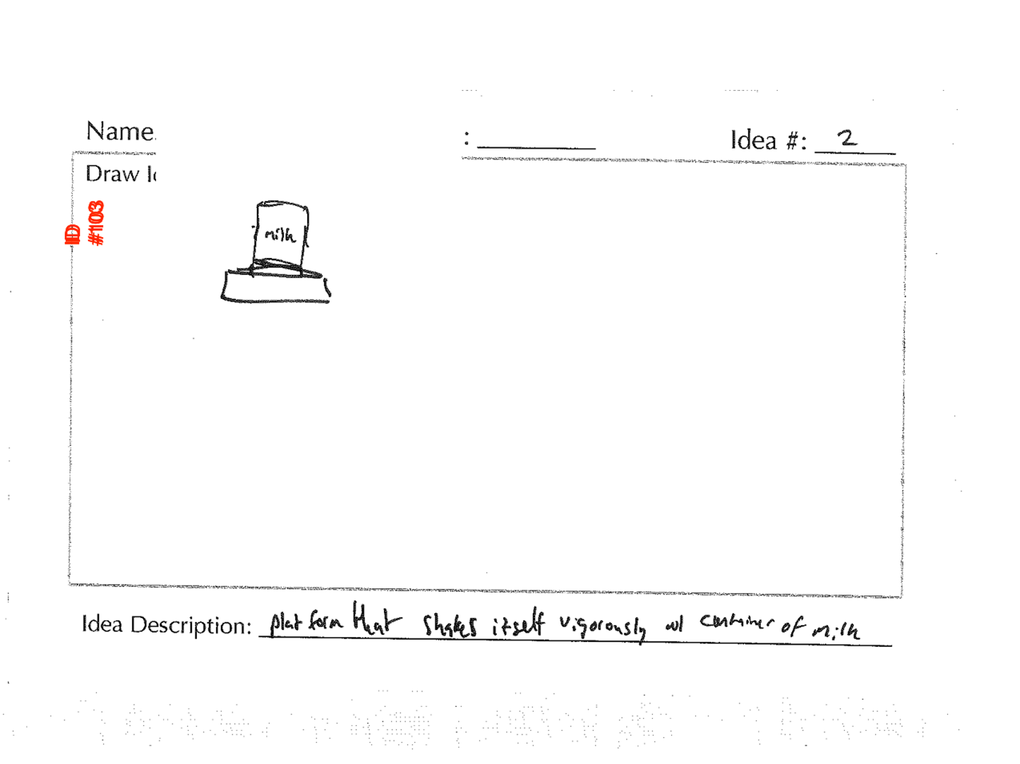 Name
: Idea #: 2
Draw Id
ID #103
milk
Idea Description: platform that shakes itself vigorously w/ container of milk